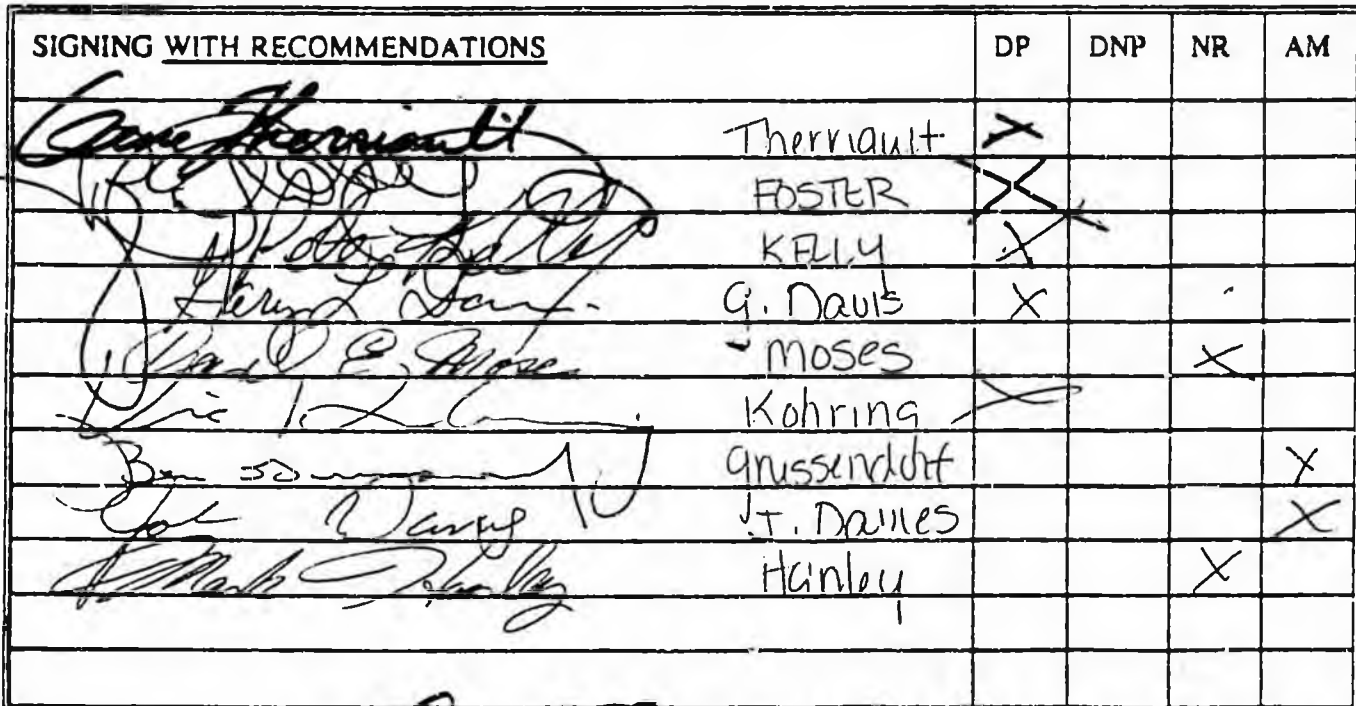 SIGNING WITH RECOMMENDATIONS DP DNP NR AM
Gene Therriault Therriault X
FOSTER X
Pete Kelly KELLY X
Gary L Davis G. Davis X
Carl E. Moses Moses X
Kohring X
Ben Grussendorf X
John Davies J. Davies X
Mark Hanley Hanley X